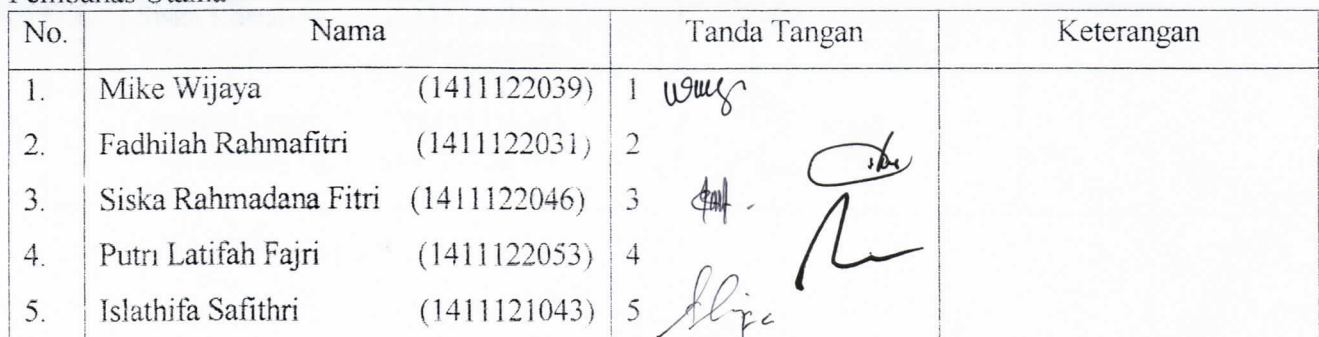 No. Nama Tanda Tangan Keterangan
1. Mike Wijaya (1411122039) 1
2. Fadhilah Rahmafitri (1411122031) 2
3. Siska Rahmadana Fitri (1411122046) 3
4. Putri Latifah Fajri (1411122053) 4
5. Islathifa Safithri (1411121043) 5